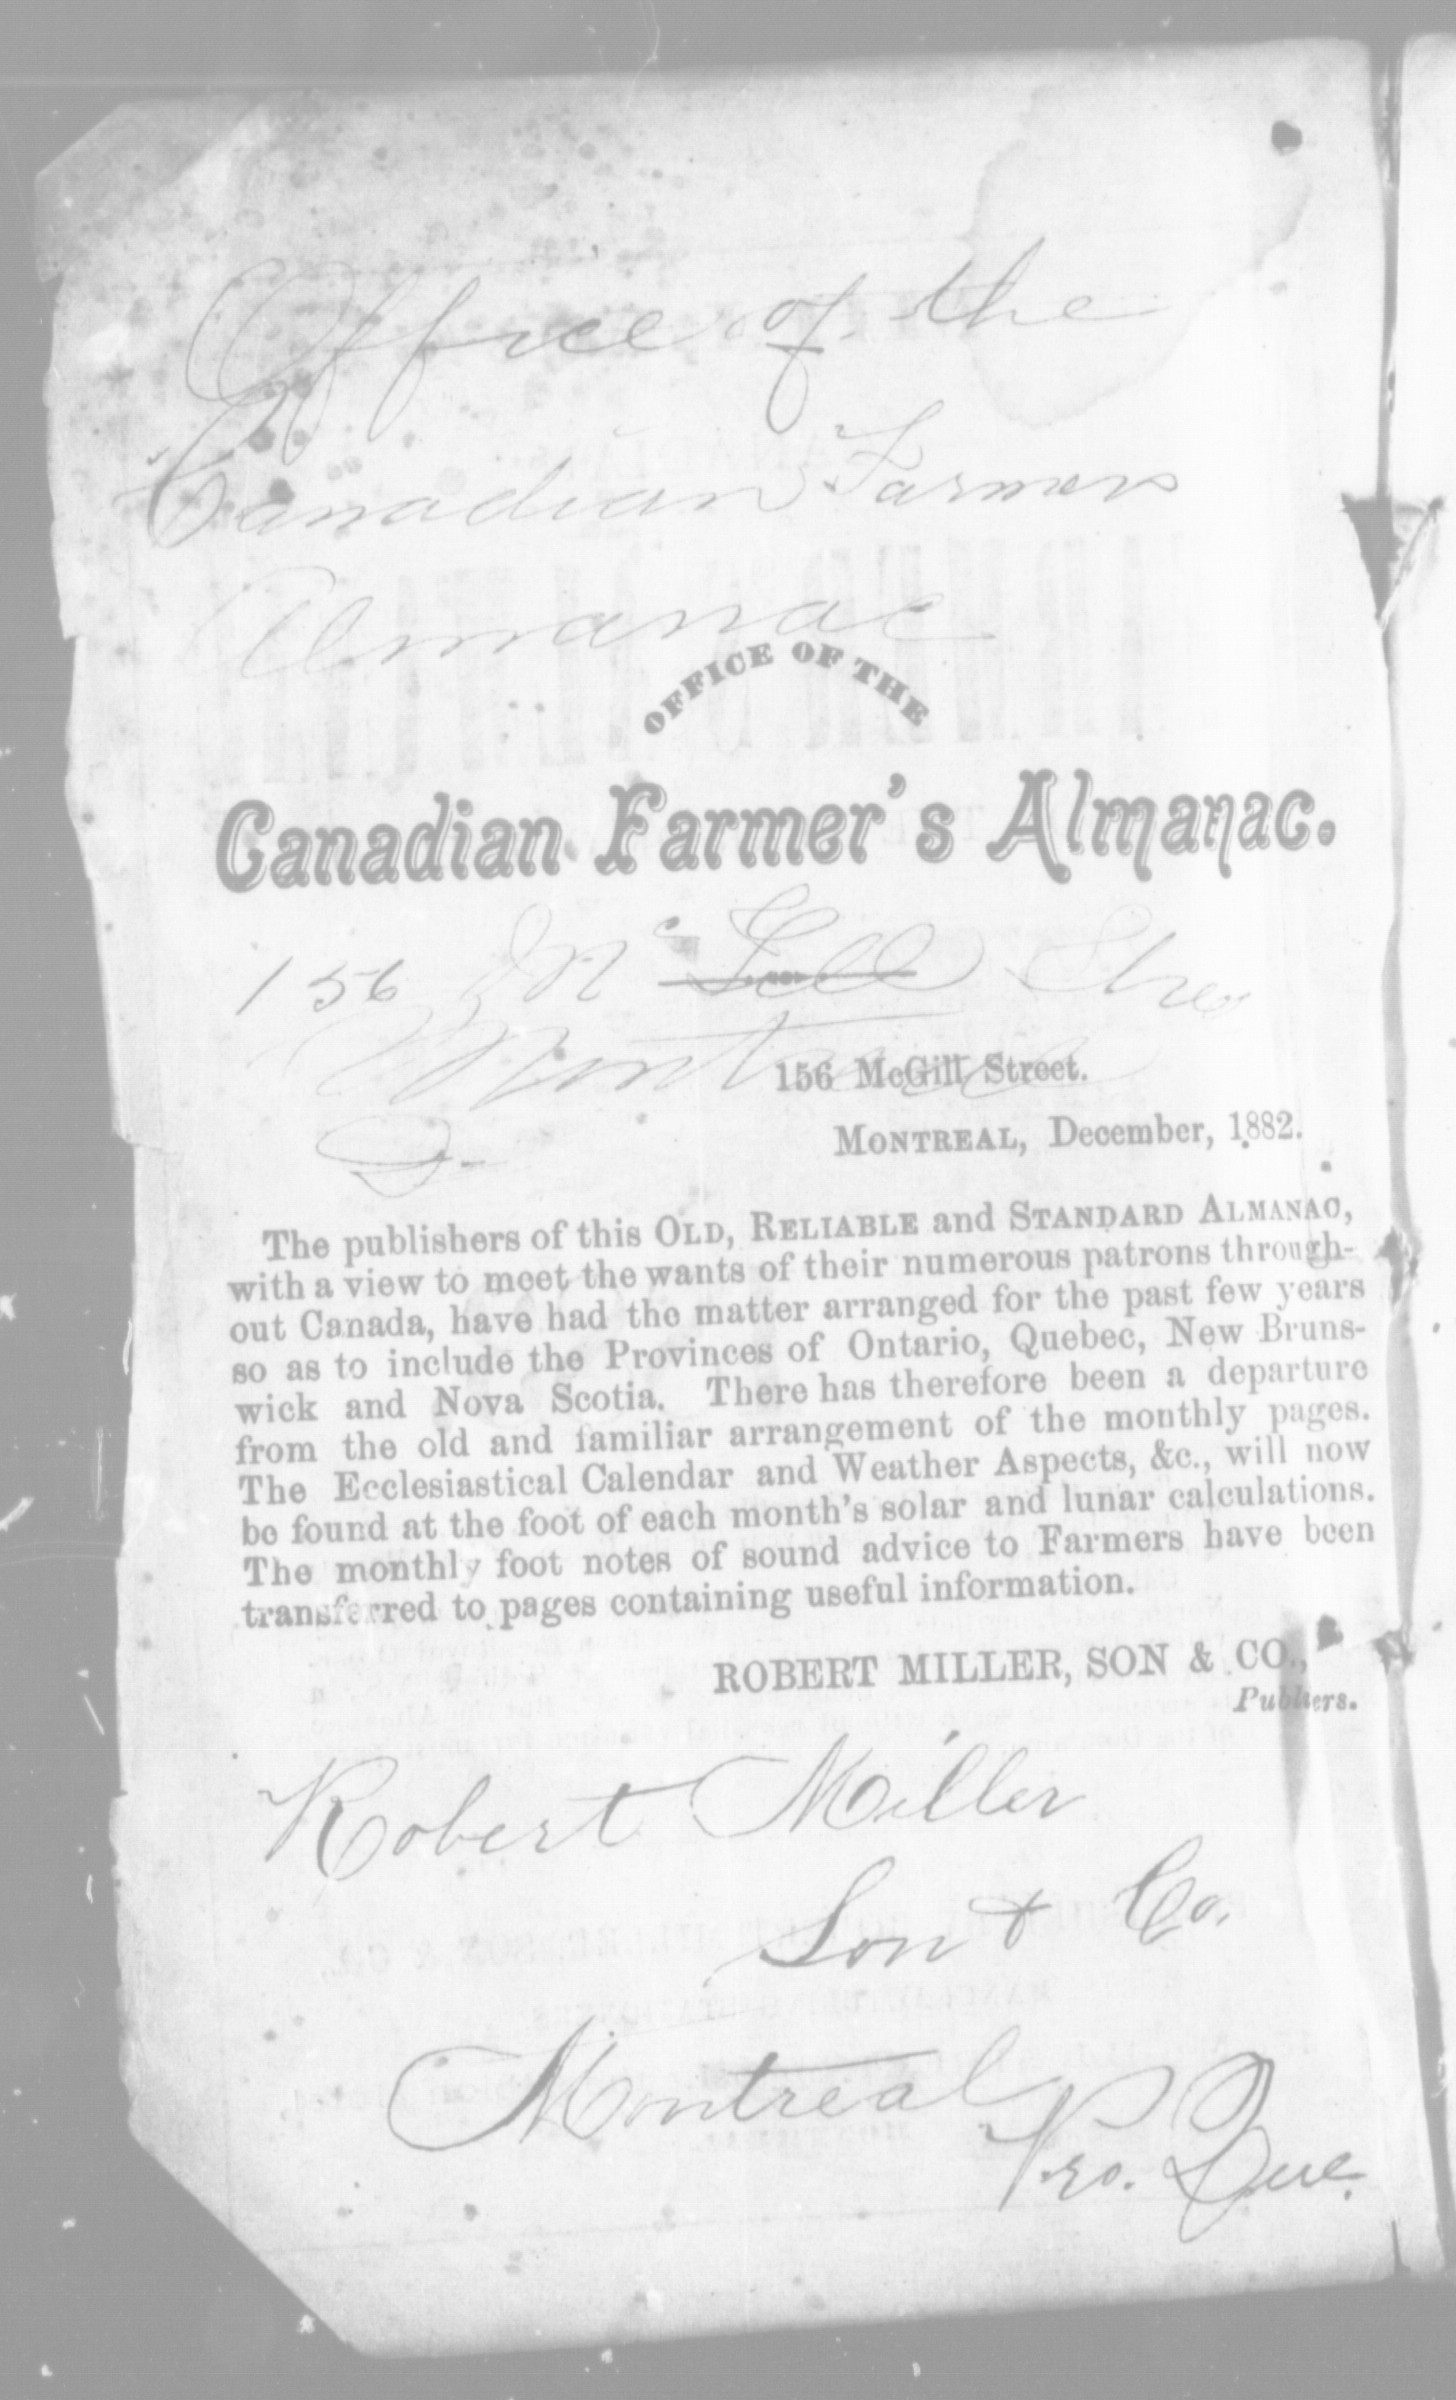 Office of the
Canadian Farmers
Almanac
OFFICE OF THE
Canadian Farmer's Almanac.
156 Mc Gill Stre
Montreal
156 McGill Street.
MONTREAL, December, 1882.
The publishers of this OLD, RELIABLE and STANDARD ALMANAC,
with a view to meet the wants of their numerous patrons through-
out Canada, have had the matter arranged for the past few years
so as to include the Provinces of Ontario, Quebec, New Bruns-
wick and Nova Scotia. There has therefore been a departure
from the old and familiar arrangement of the monthly pages.
The Ecclesiastical Calendar and Weather Aspects, &c., will now
be found at the foot of each month's solar and lunar calculations.
The monthly foot notes of sound advice to Farmers have been
transferred to pages containing useful information.
ROBERT MILLER, SON & CO.,
Publiers.
Robert Miller
Son & Co.
Montreal
Pro. Que.